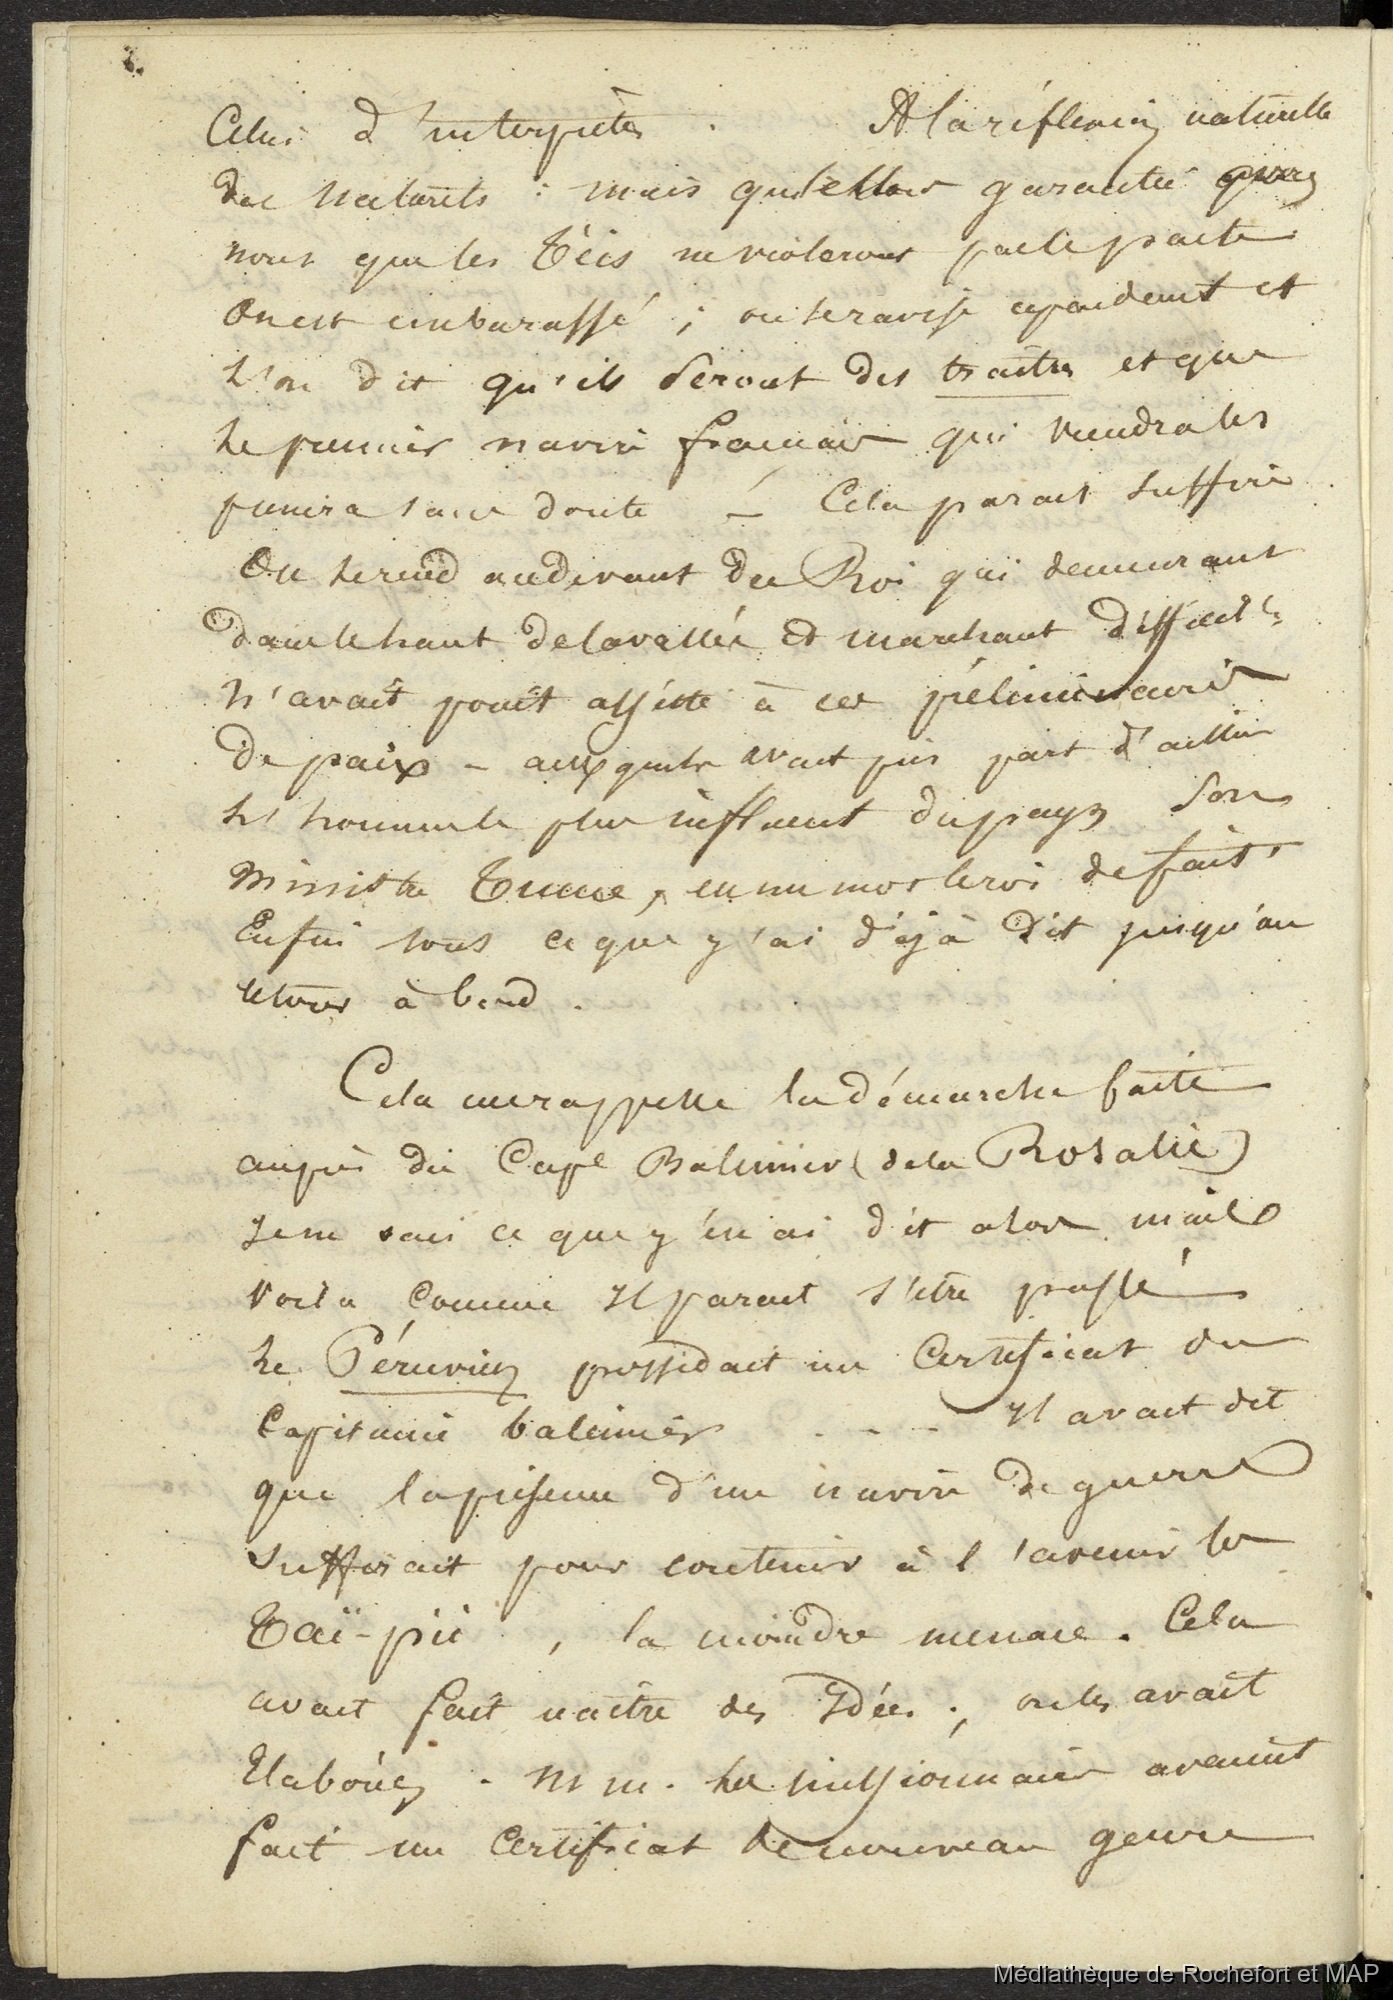 8.
Celui d'interprète. A la réflexion naturelle
des naturels : mais quelle est garantie
nous que les Téis ne violerons pas le pacte
on est embarassé ; on se ravise cependant et
l'on dit qu'ils seront des traitres et que
le premier navire francais qui viendra les
punira sans doute – Cela parait suffire
On se rend audevant du Roi qui demeurant
dans le haut de la vallée et marchant difficilt
n'avait point assisté à ces préliminaires
de paix – auxquels avait pris part d'ailleurs
l'homme le plus influent du pays son
ministre , en un mot le roi de fait.
Enfin tous ce que j'ai déjà dit jusqu'au
retour à bord.
Cela me rappelle la démarche faite
auprès du Cape Baleinier (de la Rosalie)
Je ne sais ce que j'en ai dit alors mais
voila comme Il parait s'etre passé
Le Péruvien possédait un Certificat du
Capitaine baleinier . - - Il avait dit
que la présence d'un navire de guerre
suffirait pour contenir à l'avenir les
Taï-pii , la moindre menace. Cela
avait fait naitre des Idées ; on les avait
Elaborées . M m. les missionnaires avaient
fait un Certificat de nouveau genre
Médiathèque de Rochefort et MAP